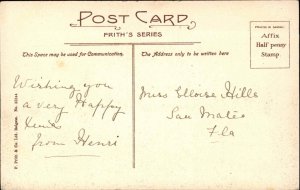 POST CARD
FRITH'S SERIES
PRINTED IN SAXONY.
Affix
Half penny
Stamp.
This Space may be used for Communication.
The Address only to be written here
Wishing you
a very Happy
Xmas
from Henri
Miss Elloise Hills
San Mateo
Fla
F. Frith & Co. Ltd. Reigate.